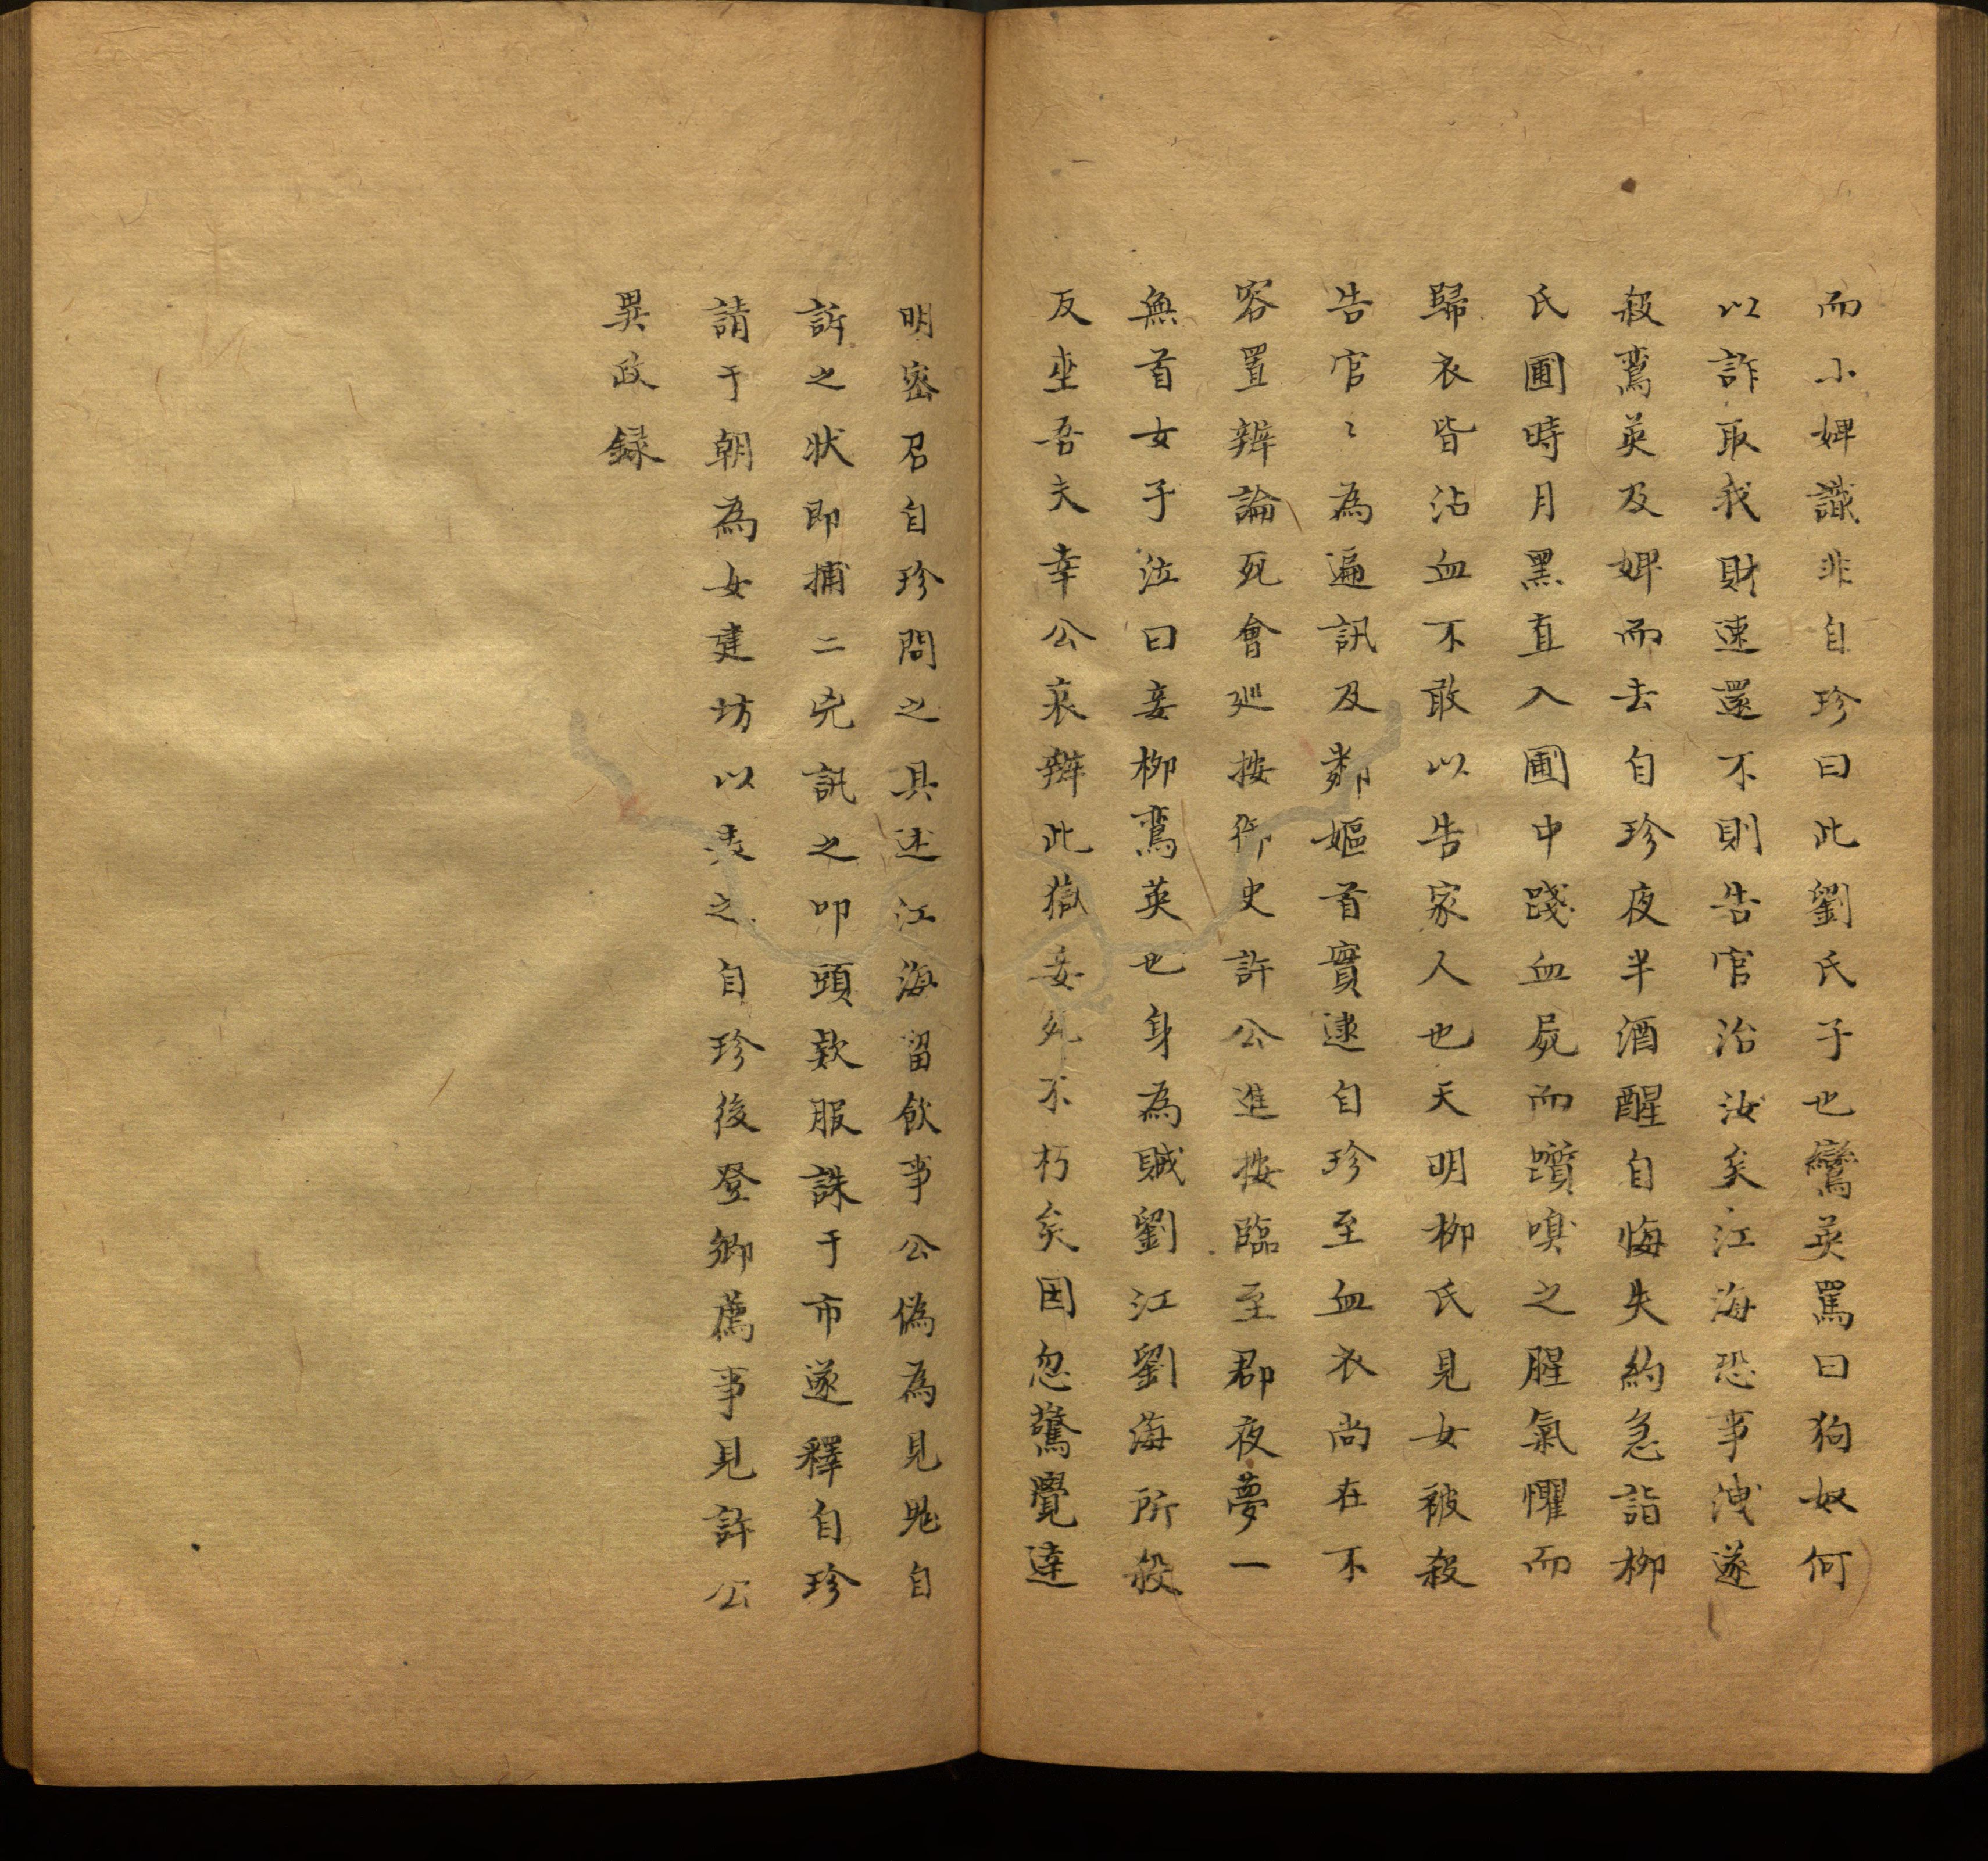 而小婢識非自珍曰此劉氏子也鸞英罵曰狗奴何
以詐取我財速還不則告官治汝矣江海恐事洩遂
殺鸾英及婢而去自珍夜半酒醒自悔失約急詣柳
氏圃時月黑直入圃中踐血屍而躓嗅之腥氣懼而
歸衣皆沾血不敢以告家人也天明柳氏見女被殺
告官〻為遍訊及鄰嫗首實逮自珍至血衣尚在不
容置辨論死會廵按御史許公進按臨至郡夜夢一
無首女子泣曰妾柳鸾英也身為賊劉江劉海所殺
反坐吾夫幸公哀辨此獄妾死不朽矣因忽驚覺達
明密召自珍問之具述江海留飲事公偽為見鬼自
訴之状即捕二兇訊之叩頭欵服誅于市遂釋自珍
請于朝為女建坊以表之自珍後登鄉薦事見許公
異政録